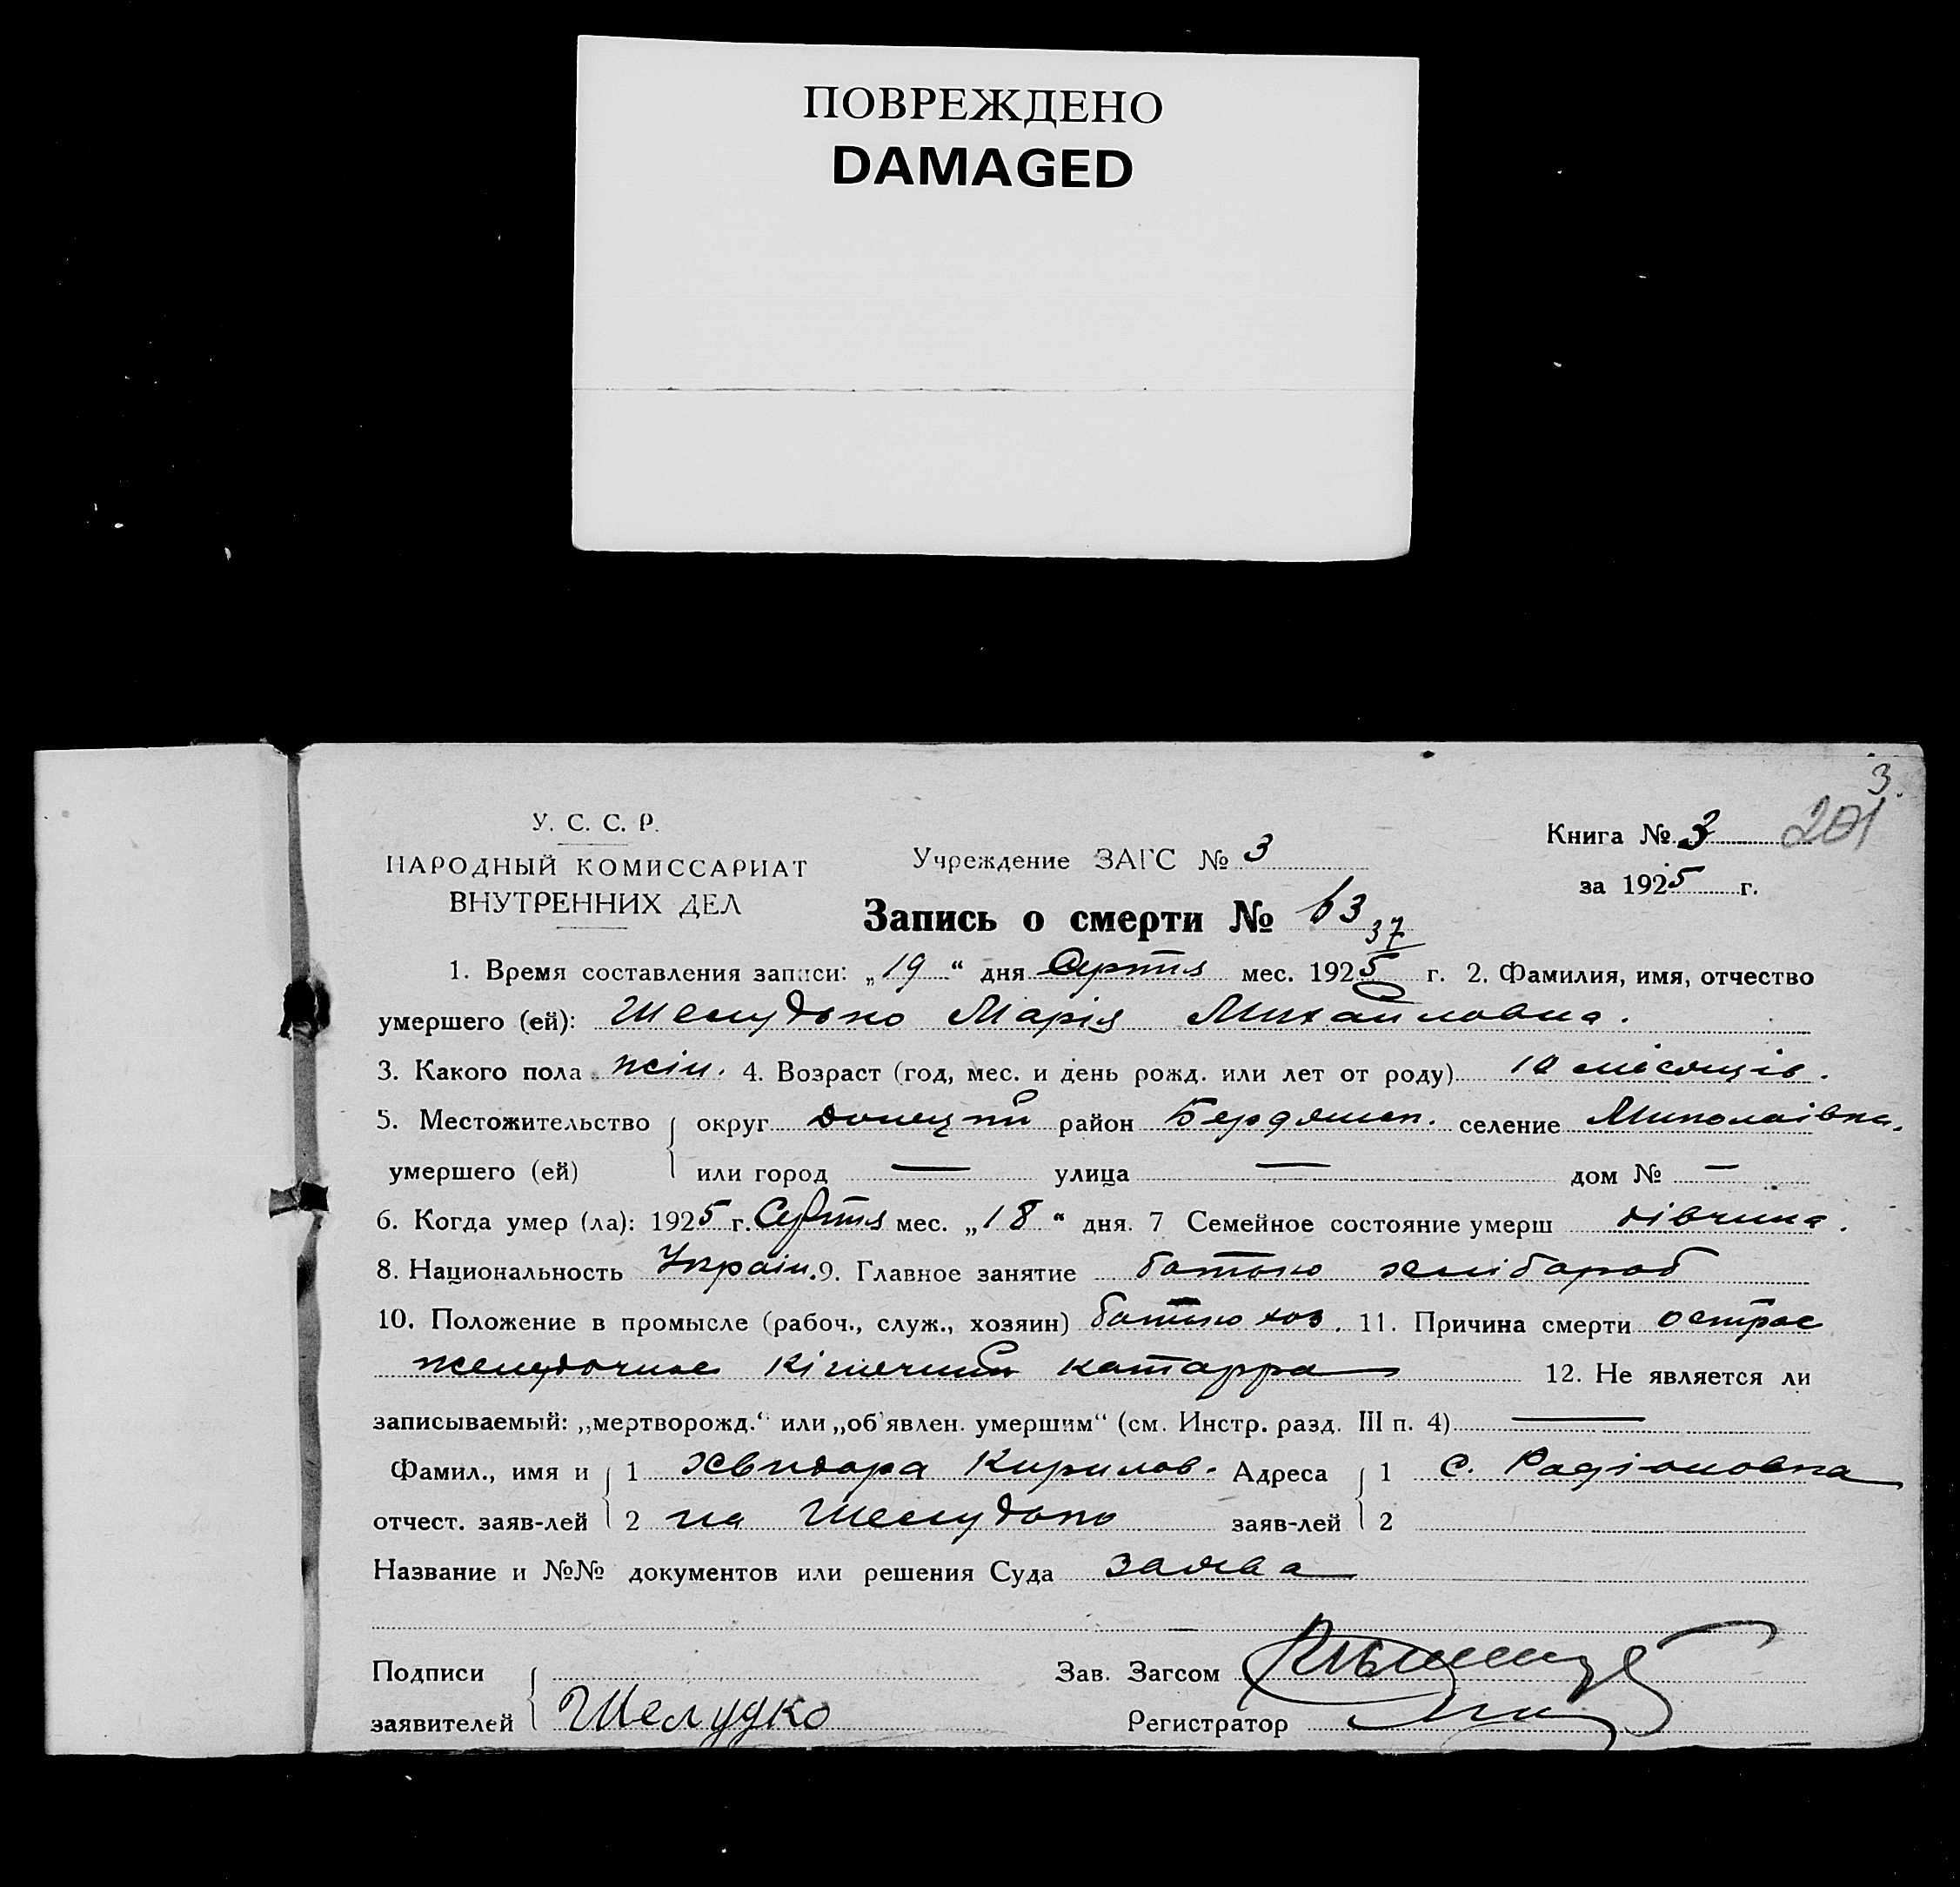 ПОВРЕЖДЕНО
DAMAGED
3.
201
У. С. С. Р.
НАРОДНЫЙ КОМИССАРИАТ
ВНУТРЕННИХ ДЕЛ
Учреждение ЗАГС № 3
Книга № 3
за 1925 г.
Запись о смерти № 63
37
1. Время составления записи: „19“ дня Серпня мес. 1925 г. 2. Фамилия, имя, отчество
умершего (ей): Шелудько Марія Михайловна.
3. Какого пола жін. 4. Возраст (год, мес. и день рожд. или лет от роду) 10 місяців.
5. Местожительство округ Донецький район Бердянск. селение Миколаівка.
умершего (ей) или город — улица — дом № —
6. Когда умер (ла): 1925 г. Серпня мес. „18“ дня. 7 Семейное состояние умерш дівчина.
8. Национальность Україн. 9. Главное занятие батько хлібороб
10. Положение в промысле (рабоч., служ., хозяин) батько хоз. 11. Причина смерти острае
желудочнае кішечний катарра 12. Не является ли
записываемый: „мертворожд.“ или „об'явлен. умершим“ (см. Инстр. разд. III п. 4) —
Фамил., имя и 1 Хвидора Кирилов- Адреса 1 С. Радіоновка
отчест. заяв-лей 2 на Шелудько заяв-лей 2
Название и №№ документов или решения Суда заява
Подписи
Зав. Загсом
заявителей Шелудко
Регистратор